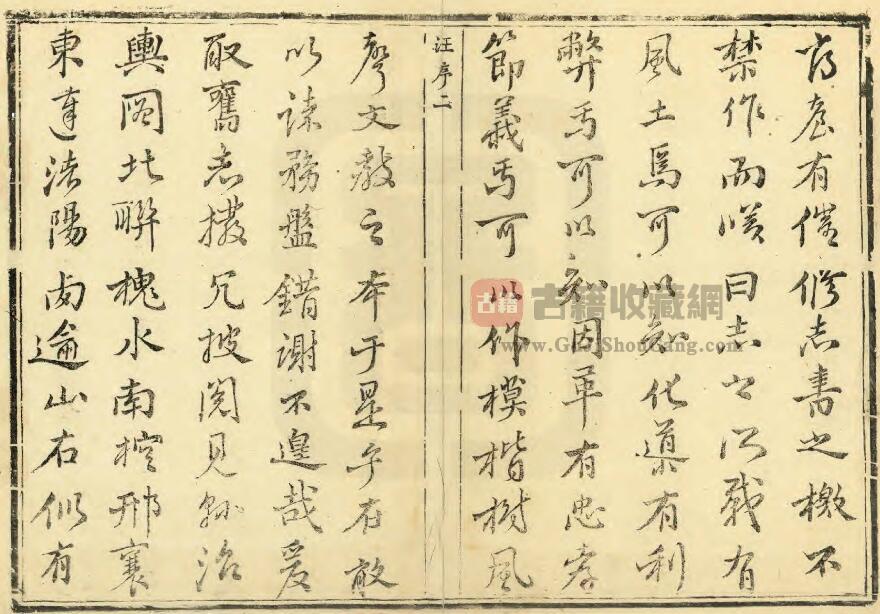 有催修志書之檄不
禁作而嘆曰志之所載有
風土焉可以知化導有利
弊焉可以知因革有忠孝
節義焉可以作模楷樹風
汪序二
聲文教之本于是乎在敢
以務盤錯謝不遑哉爰
取舊志撥冗披閱見縣治
輿圖北聯槐水南控邢襄
東達陽西逾山右似有
古籍
古籍收藏網
www.GuJiShouCang.com